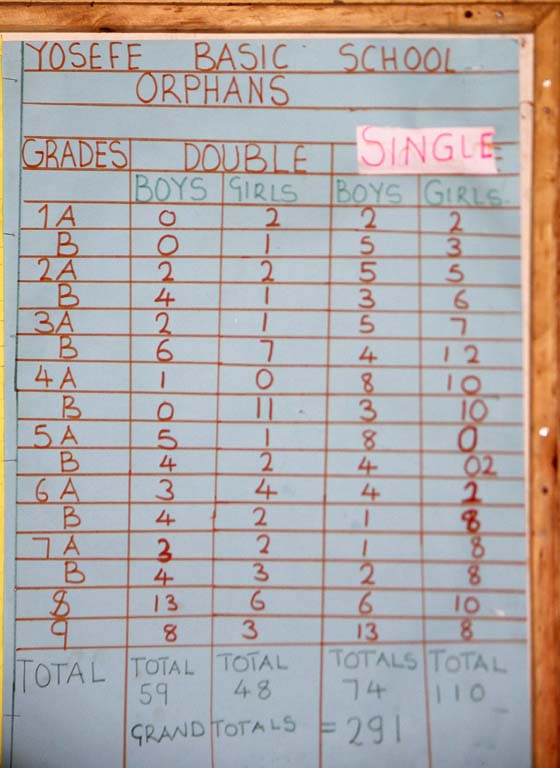 YOSEFE BASIC SCHOOL
ORPHANS
GRADES DOUBLE SINGLE
BOYS GIRLS BOYS GIRLS
1A 0 2 2 2
B 0 1 5 3
2A 2 2 5 5
B 4 1 3 6
3A 2 1 5 7
B 6 7 4 12
4A 1 0 8 10
B 0 11 3 10
5A 5 1 8 0
B 4 2 4 02
6A 3 4 4 2
B 4 2 1 8
7A 3 2 1 8
B 4 3 2 8
8 13 6 6 10
9 8 3 13 8
TOTAL TOTAL TOTAL TOTALS TOTAL
59 48 74 110
GRAND TOTALS = 291